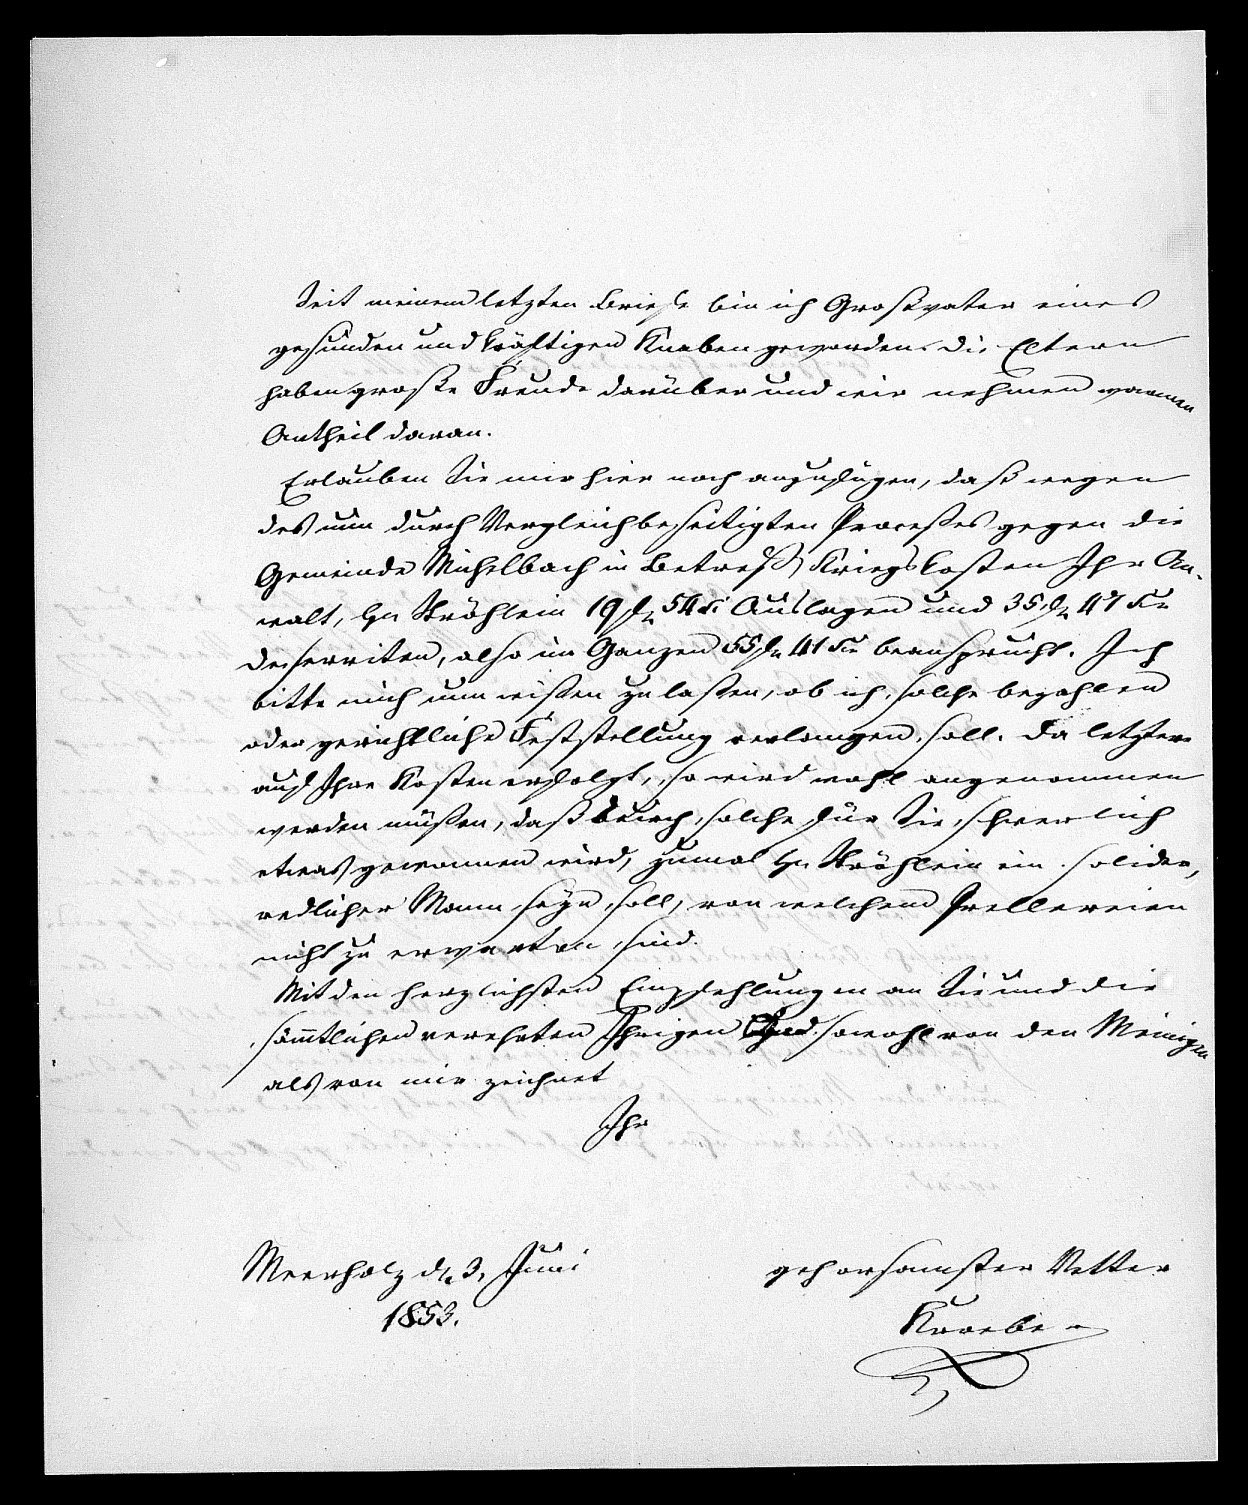 Seit meinem letzten Briefe bin ich Großvater eines
gesunden und kräftigen Knaben geworden. Die Eltern
haben große Freude darüber und wir nehmen warmen
Antheil daran.
Erlauben Sie mir hier noch anzufügen, daß wegen
des nun durch Vergleich beseitigten Proceßes gegen die
Gemeinde Michelbach in Betreff Kriegskosten Ihr An-
walt, Hr Ströhlein 19 fl 54 Kr Auslagen und 35 fl 47 Kr
Deserviten, also im Ganzen 55 fl 41 Kr beansprucht. Ich
bitte mich nun wißen zu laßen, ob ich solche bezahlen
oder gerichtliche Feststellung verlangen soll. Da letztere
auf Ihre Kosten erfolgt, so wird wohl angenommen
werden müßen, daß durch solche für Sie schwerlich
etwas gewonnen wird, zumal Hr Ströhlein ein solider,
redlicher Mann seyn soll, von welchem Prellereien
nicht zu erwarten sind.
Mit den herzlichsten Empfehlungen an Sie und die
sämtlichen verehrten Ihrigen sowohl von den Meinigen
als von mir zeichnet
Ihr
Meerholz d. 3. Juni gehorsamster Vetter
1853.